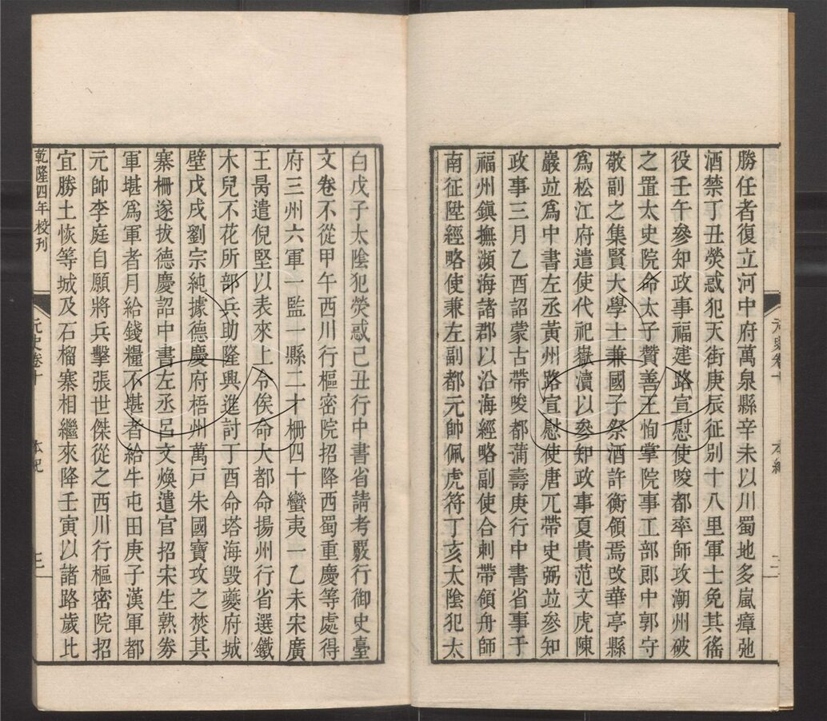 勝任者復立河中府萬泉縣辛未以川蜀地多嵐瘴弛
酒禁丁丑熒惑犯天街庚辰征別十八里軍士免其徭
役壬午參知政事福建路宣慰使唆都率師攻潮州破
之置太史院命太子贊善王恂掌院事工部郎中郭守
敬副之集賢大學士兼國子祭酒許衡領焉改華亭縣
爲松江府遣使代祀嶽瀆以參知政事夏貴范文虎陳
巖竝爲中書左丞黃州路宣慰使唐兀帶史弼竝參知
政事三月乙酉詔蒙古帶唆都蒲壽庚行中書省事于
福州鎭撫瀕海諸郡以沿海經略副使合剌帶領舟師
南征陞經略使兼左副都元帥佩虎符丁亥太陰犯太
白戊子太陰犯熒惑己丑行中書省請考覈行御史臺
文卷不從甲午西川行樞密院招降西蜀重慶等處得
府三州六軍一監一縣二十柵四十蠻夷一乙未宋廣
王昺遣倪堅以表來上令俟命大都命揚州行省選鐵
木兒不花所部兵助隆興進討丁酉命塔海毀夔府城
壁戊戌劉宗純據德慶府梧州萬戸朱國寶攻之焚其
寨柵遂拔德慶詔中書左丞呂文煥遣官招宋生熟券
軍堪爲軍者月給錢糧不堪者給牛屯田庚子漢軍都
元帥李庭自願將兵擊張世傑從之西川行樞密院招
宜勝土恢等城及石榴寨相繼來降壬寅以諸路歲比
乾隆四年校刊
元史卷十
本紀
三